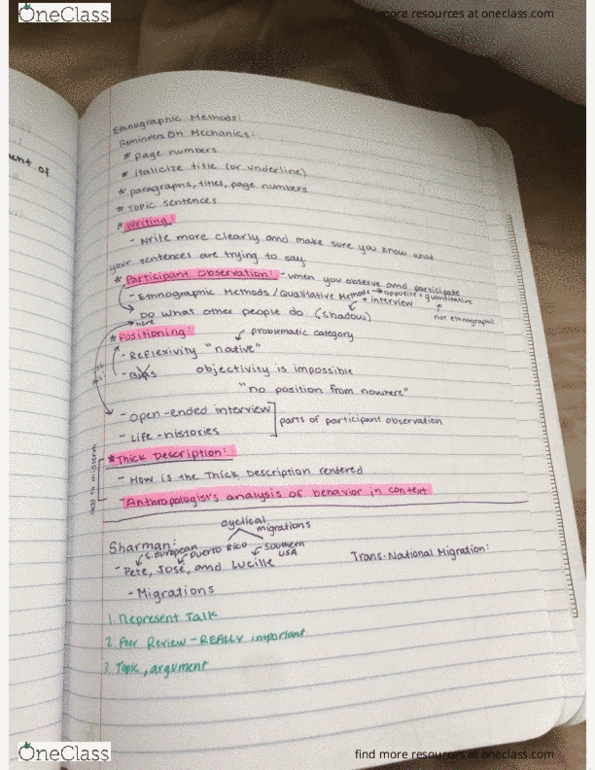 OneClass
more resources at oneclass.com
Ethnographic Methods:
Reminders On Mechanics:
* page numbers
* italicize title (or underline)
* paragraphs, times, page numbers
* TOPIC sentences
* Writing:
- Write more clearly and make sure you know what
your sentences are trying to say
* Participant Observation: - when you observe and participate
- Ethnographic Methods / Qualitative Methods → opposite = quantitative
+ interview
not ethnographic
Do what other people do (shadow)
here
* Positioning:
problematic category
- Reflexivity "native"
- Bias objectivity is impossible
"no position from nowhere"
- open-ended interview
parts of participant observation
- Life-histories
* Thick Description:
add to midterm
- How is the Thick Description rendered
- Anthropologist's analysis of behavior in context
cyclical
migrations
Sharman:
S. European Puerto Rico Southern
USA
Trans-National Migration:
- Pete, José, and Lucille
- Migrations
1. Represent Talk
2. Peer Review - REALLY important
3. Topic, argument
OneClass
find more resources at oneclass.com